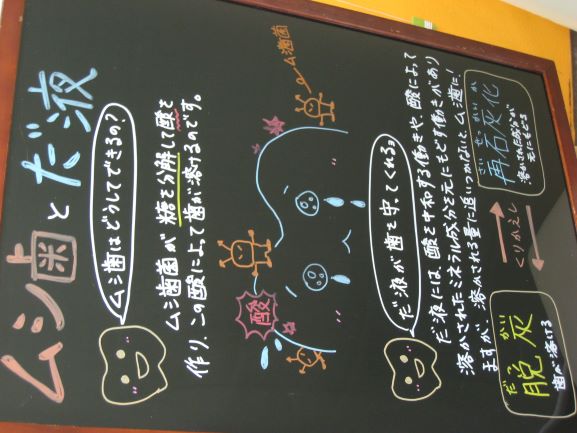 ムシ歯とだ液
ムシ歯はどうしてできるの？
ムシ歯菌が 糖を分解して酸を
作り、この酸によって歯が溶けるのです。
酸
ムシ歯菌
だ液が歯を守ってくれるョ
だ液には、酸を中和する働きや、酸によって
溶かされたミネラル成分を元にもどす働きがあり
ますが、溶かされる量に追いつかないと、ムシ歯に！
だっかい
脱炭
歯が溶ける
くりかえし
さいせっかいか
再石灰化
溶かされた成分が
元にもどる